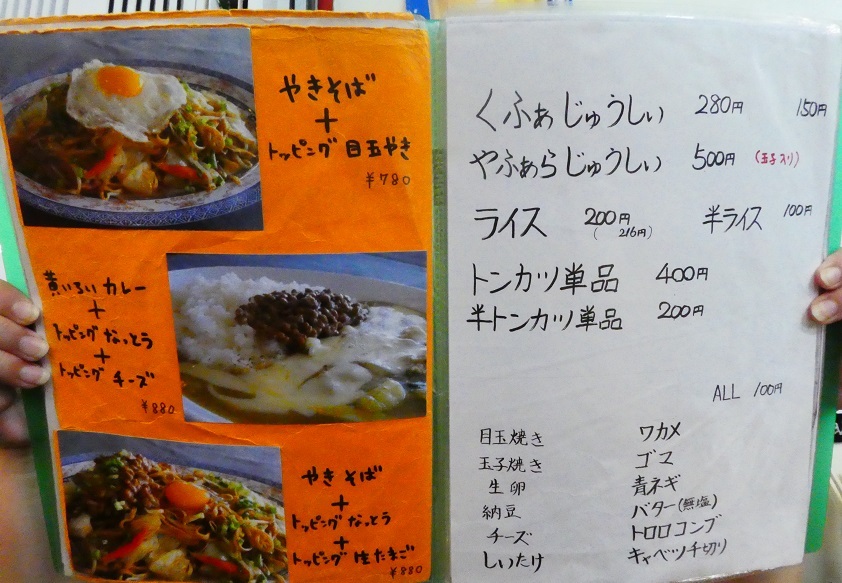 やきそば
+
トッピング 目玉やき
¥780
黄いろいカレー
+
トッピング なっとう
+
トッピング チーズ
¥880
やきそば
+
トッピング なっとう
+
トッピング 生たまご
¥880
くふぁじゅうしぃ 280円 150円
やふぁらじゅうしぃ 500円 (玉子入り)
ライス 200円 半ライス 100円
( 216円)
トンカツ単品 400円
半トンカツ単品 200円
ALL 100円
目玉焼き ワカメ
玉子焼き ゴマ
生卵 青ネギ
納豆 バター(無塩)
チーズ トロロコンブ
しいたけ キャベツ千切り